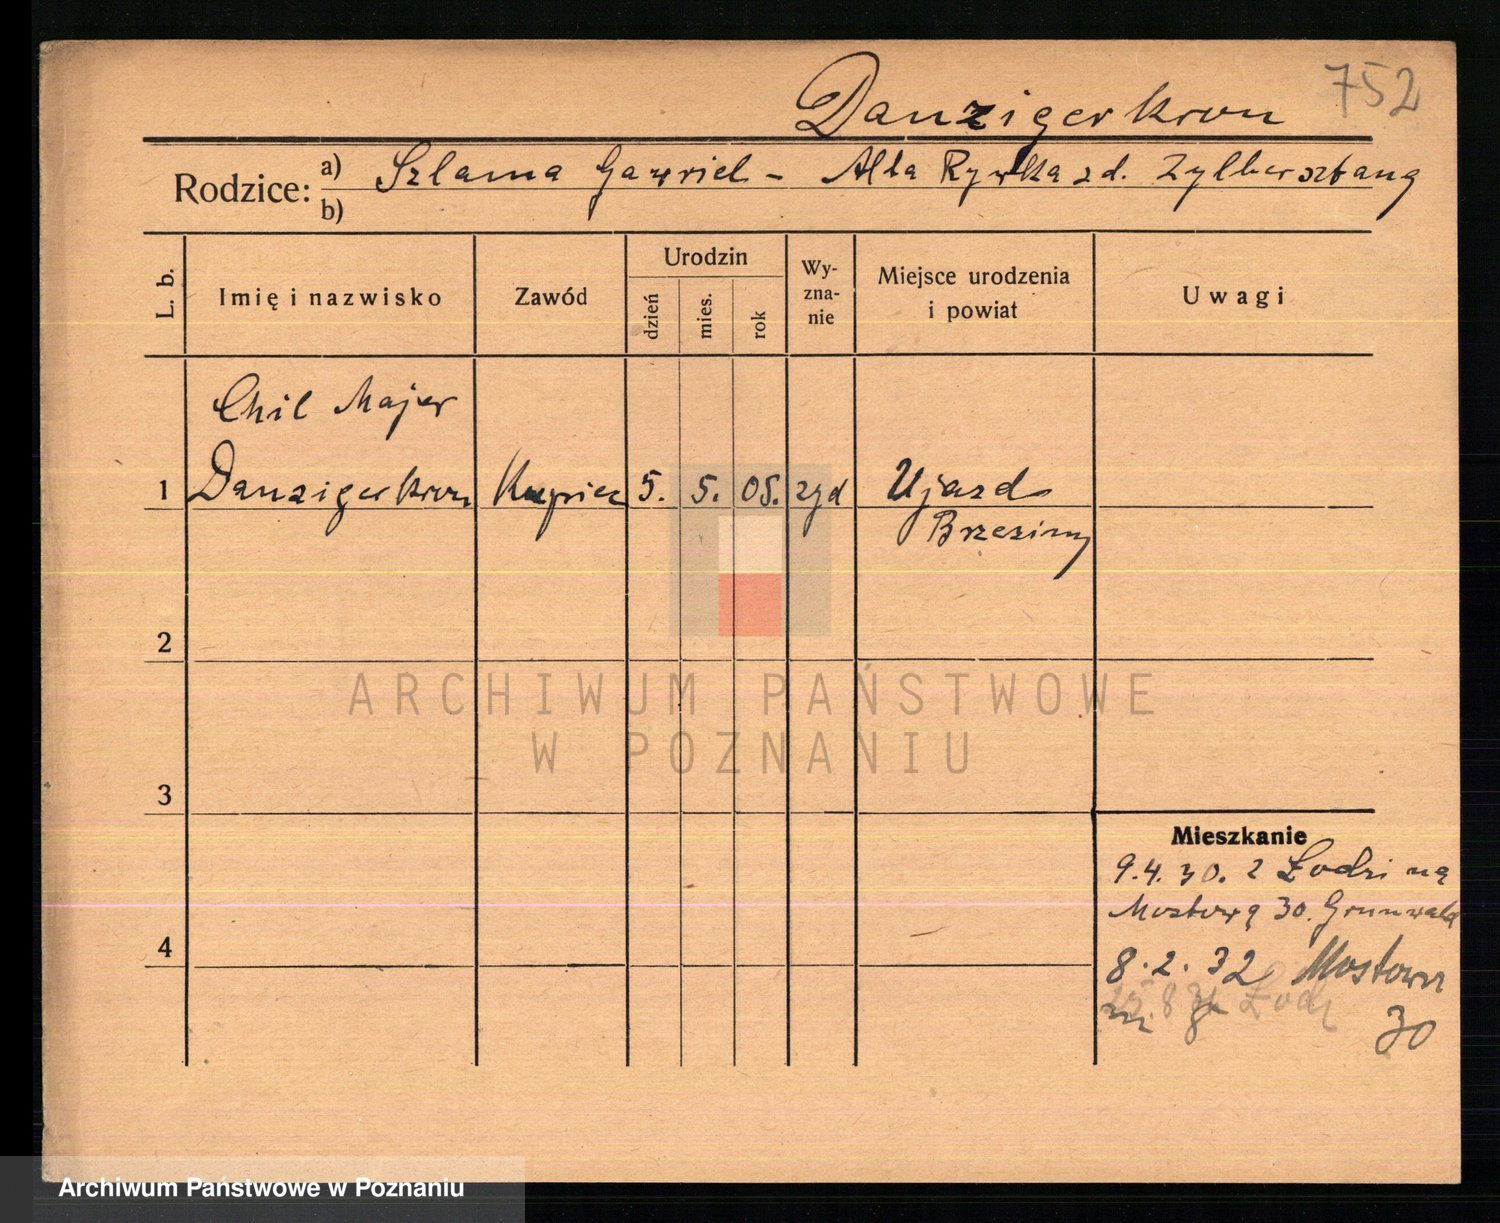 752
Danzigerkron
Rodzice: a) Szlama Gawriel - Alta Rywka zd. Zylbersztang
b)
L. b.
Imię i nazwisko
Zawód
Urodzin
dzień
mies.
rok
Wy-
zna-
nie
Miejsce urodzenia
i powiat
Uwagi
Chil Majer
1 Danzigerkron Kupiec 5. 5. 05. żyd Ujazd
Brzeziny
2
ARCHIWUM PAŃSTWOWE
W POZNANIU
3
Mieszkanie
9.4.30. z Łodzi na
Mostową 30. Grunwald
4
8.2.32 Mostowa
30
8 Łodz
Archiwum Państwowe w Poznaniu